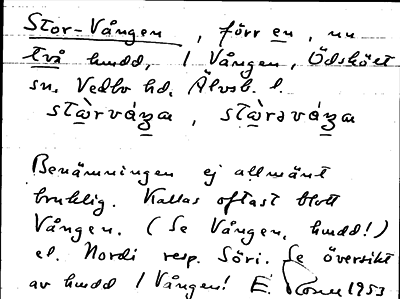 Stor-Vången, förr en, nu
två hmdd, 1 Vången, Ödsköet
sn, Vedbo hd, Älvsb. l.
Benämningen ej allmänt
bruklig. Kallas oftast blott
Vången. (Se Vången, hmdd!)
el. Nordi resp. Söri. Se översikt
av hmdd 1 Vången! E. 1953